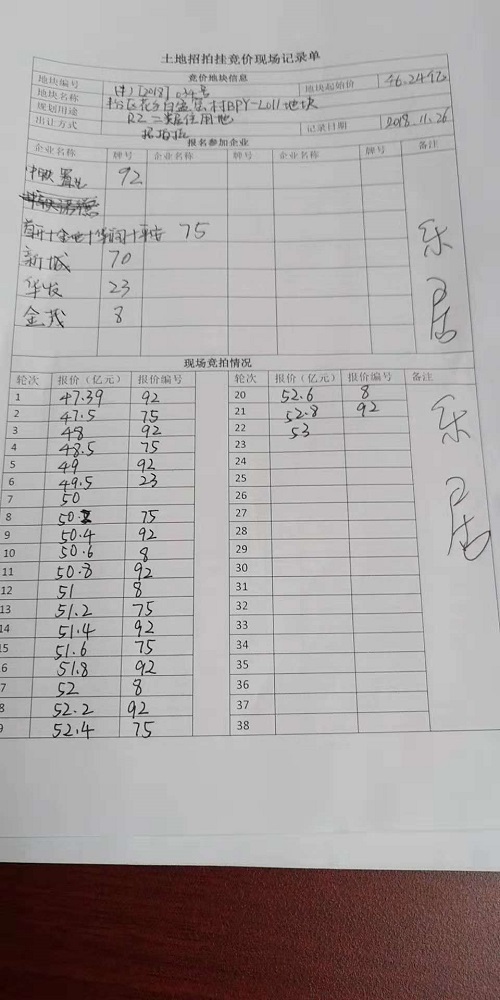 土地招拍挂竞价现场记录单
竞价地块信息
地块编号 [2018]034号 地块起始价 46.24亿
地块名称 BPY-L011地块
规划用途 R2二类居住用地
出让方式 招拍挂 记录日期 2018.11.26
报名参加企业
企业名称 牌号 企业名称 牌号 企业名称 牌号 备注
中铁置业 92
首开+金地+华润+平安 75
新城 70
华发 23
金茂 8
乐居
现场竞拍情况
轮次 报价（亿元） 报价编号 轮次 报价（亿元） 报价编号 备注
1 47.39 92 20 52.6 8
2 47.5 75 21 52.8 92
3 48 92 22 53
4 48.5 75 23
5 49 92 24
6 49.5 23 25
7 50 26
8 50.2 75 27
9 50.4 92 28
10 50.6 8 29
11 50.8 92 30
12 51 8 31
13 51.2 75 32
14 51.4 92 33
15 51.6 75 34
6 51.8 92 35
7 52 8 36
8 52.2 92 37
9 52.4 75 38
乐居